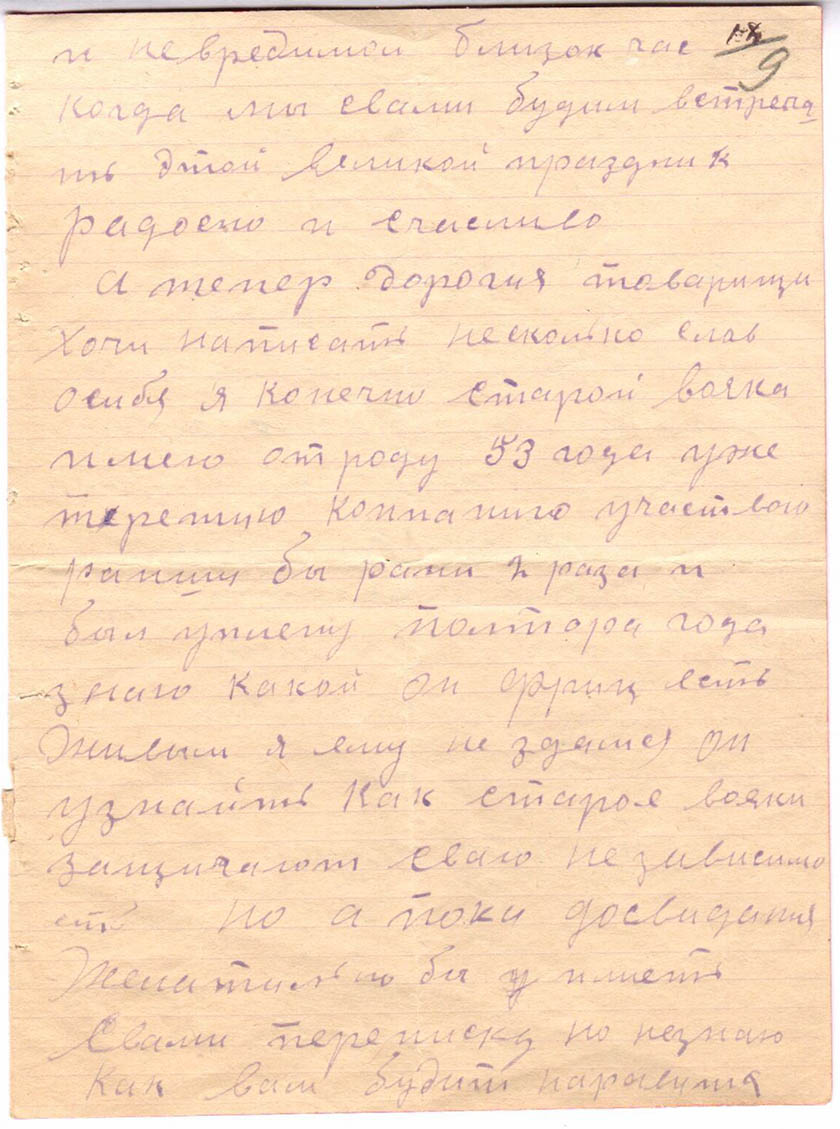 и невредимои близок час
9
когда мы свами будим встреча
ть этой великой праздник
радосно и счасливо
А тепер дорогия товарищи
хочи написать несколько слов
осибя я конечно старой вояка
имею отроду 53 года уже
теретию компанию участваю
раниш бы рани 2 раза и
был уплену полтора года
знаю какой он фриц есть
живым я ему не здамся он
узнаить как старое вояки
защичают сваю независимо
сть но а пока досвидания
Желательно бы иметь
Свами переписку но незнаю
Как вам будит наравится